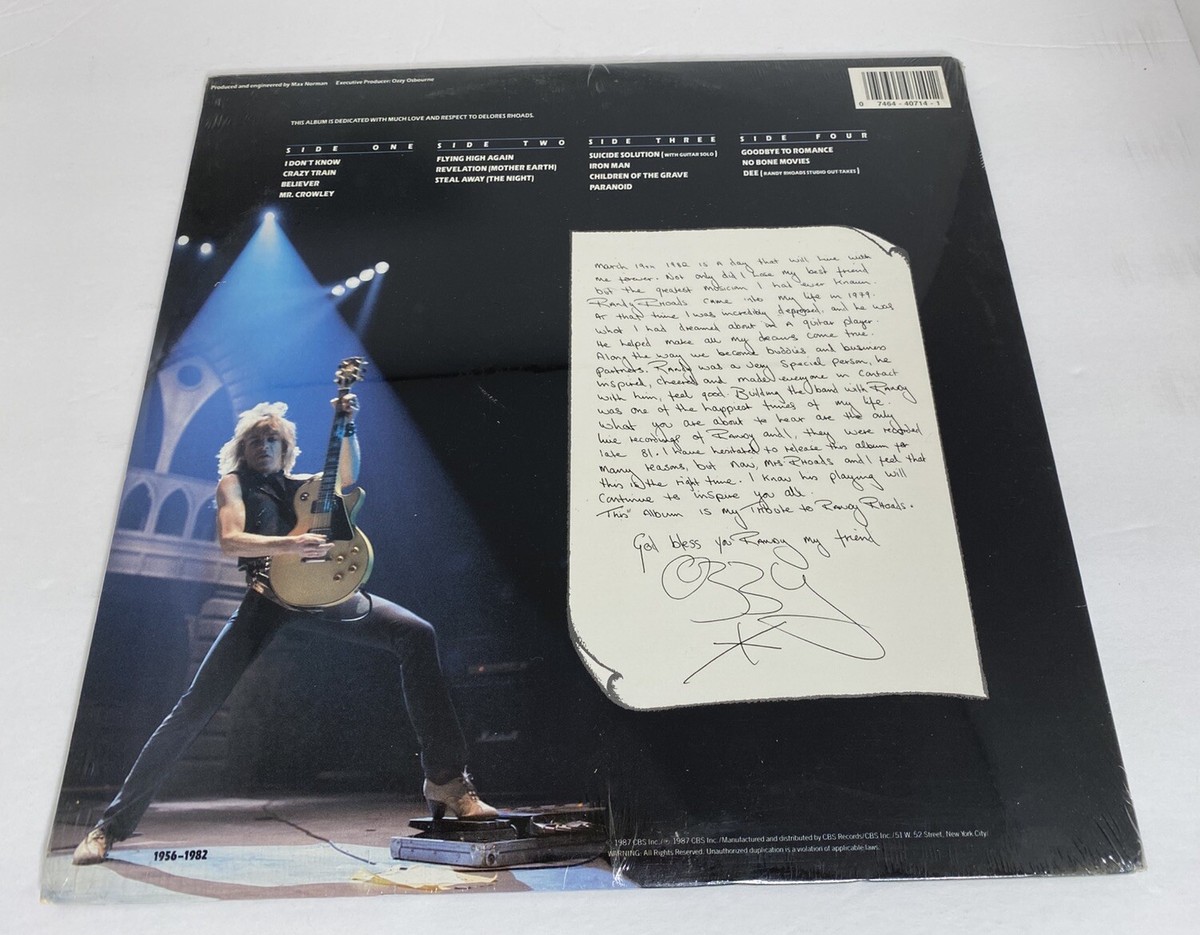 Produced and engineered by Max Norman   Executive Producer: Ozzy Osbourne
0 7464-40714-1
THIS ALBUM IS DEDICATED WITH MUCH LOVE AND RESPECT TO DELORES RHOADS.
SIDE ONE
I DON'T KNOW
CRAZY TRAIN
BELIEVER
MR. CROWLEY
SIDE TWO
FLYING HIGH AGAIN
REVELATION (MOTHER EARTH)
STEAL AWAY (THE NIGHT)
SIDE THREE
SUICIDE SOLUTION (WITH GUITAR SOLO)
IRON MAN
CHILDREN OF THE GRAVE
PARANOID
SIDE FOUR
GOODBYE TO ROMANCE
NO BONE MOVIES
DEE (RANDY RHOADS STUDIO OUT-TAKES)
March 19th 1982 is a day that will live with
me forever. Not only did I lose my best friend
but the greatest musician I had ever known.
Randy Rhoads came into my life in 1979.
At that time I was incredibly depressed, and he was
what I had dreamed about in a guitar player.
He helped make all my dreams come true.
Along the way we become buddies and business
partners. Randy was a very special person, he
inspired, cheered and made everyone in contact
with him, feel good. Building the band with Randy
was one of the happiest times of my life.
What you are about to hear are the only
live recordings of Randy and I, they were recorded
late 81. I have hesitated to release this album for
many reasons, but now, Mrs Rhoads and I feel that
this is the right time. I know his playing will
continue to inspire you all.
This Album is my Tribute to Randy Rhoads.
God bless you Randy my friend
Ozzy
1956-1982
1987 CBS Inc./℗ 1987 CBS Inc./Manufactured and distributed by CBS Records/CBS Inc./51 W. 52 Street, New York City/
WARNING: All Rights Reserved. Unauthorized duplication is a violation of applicable laws.